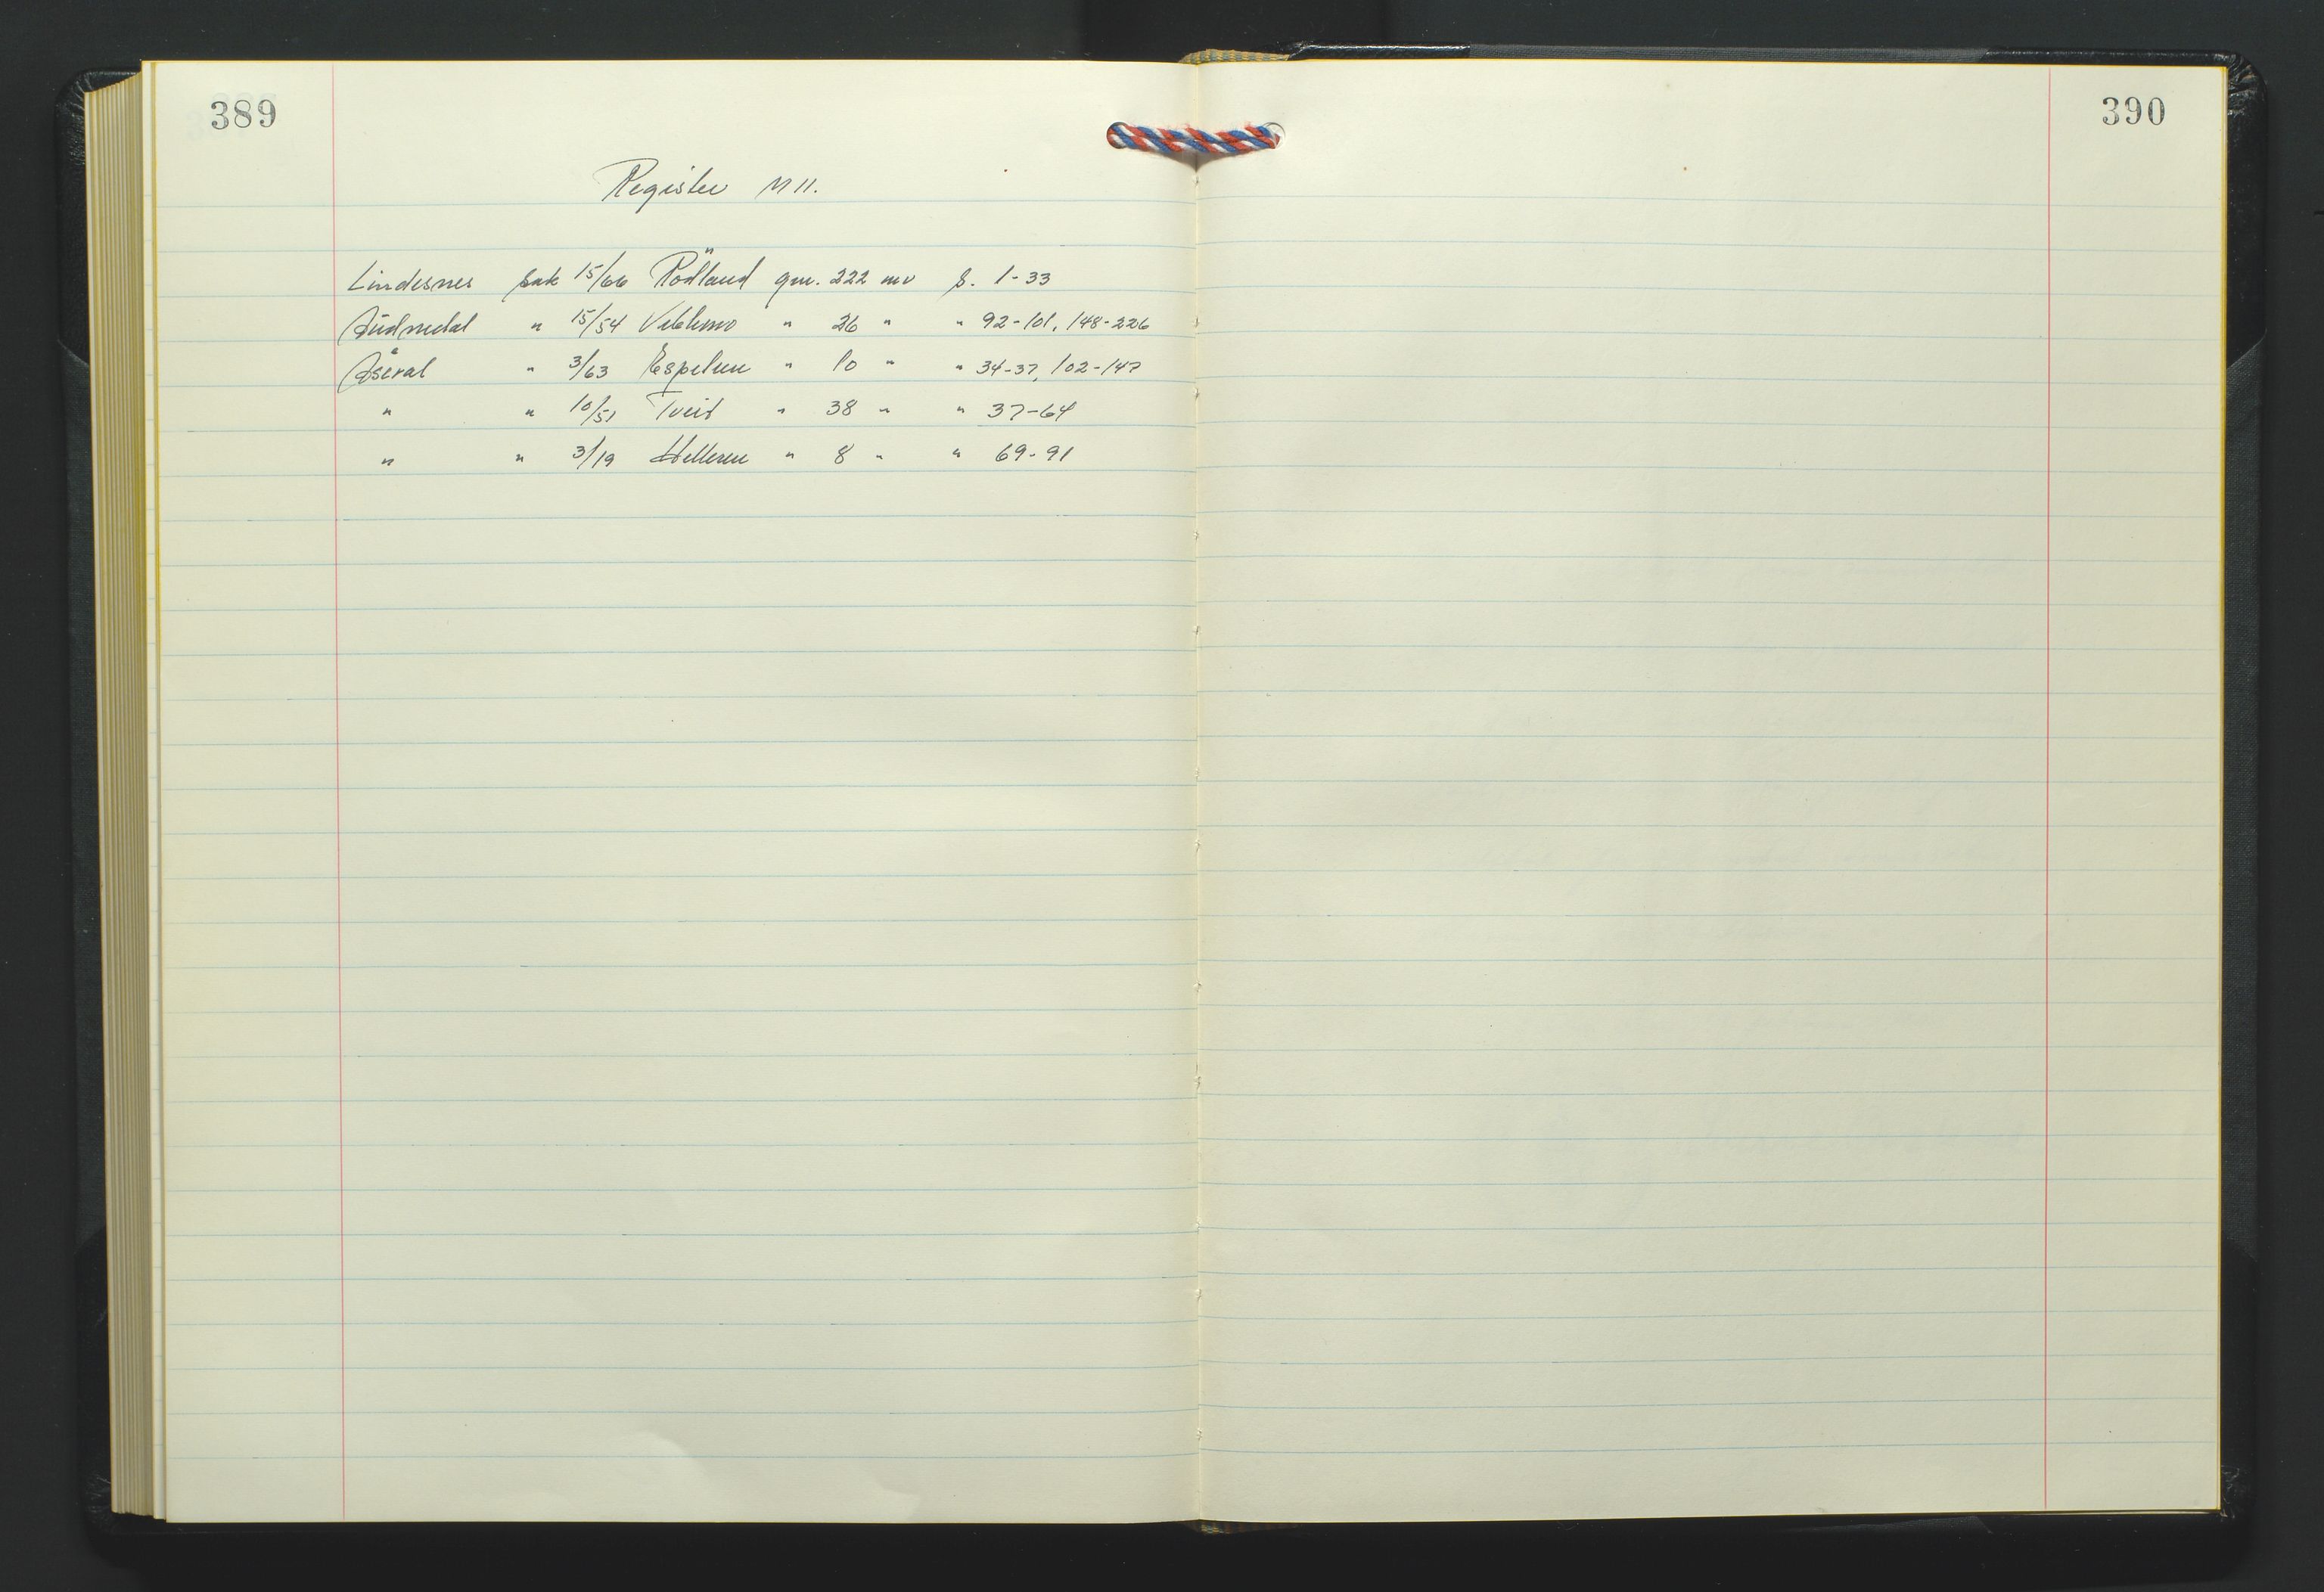 389
390
Register M 11.
Lindesnes sak 15/66 Rödland gnr. 222 mv s. 1-33
Audnedal " 15/54 Vehlemo " 26 " " 92-101, 148-226
Åseral " 3/63 Espelien " 10 " " 34-37, 102-147
" " 10/51 Tveit " 38 " " 37-64
" " 3/19 Helleren " 8 " " 69-91